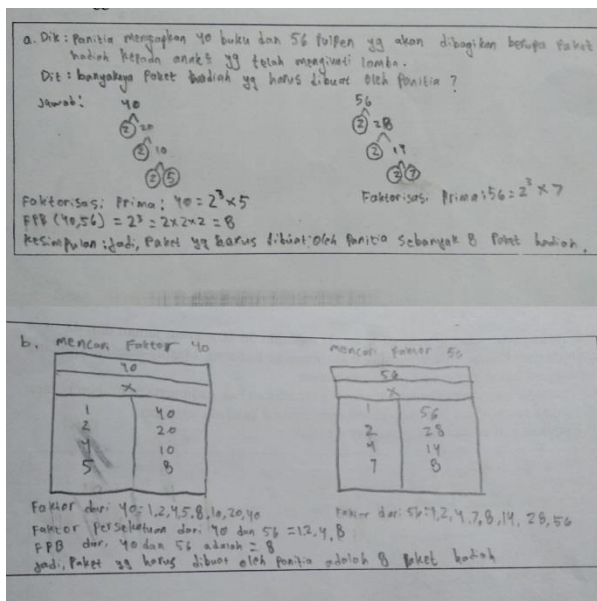 a. Dik : Panitia menyiapkan 40 buku dan 56 Pulpen yg akan dibagikan berupa Paket
hadiah kepada anak² yg telah mengikuti lomba.
Dit : banyaknya Paket hadiah yg harus dibuat oleh Panitia ?
Jawab :
40
2 20
2 10
2 5
56
2 28
2 14
2 7
Faktorisasi Prima : 40 = 2³ × 5
Faktorisasi Prima : 56 = 2³ × 7
FPB (40,56) = 2³ = 2×2×2 = 8
Kesimpulan : Jadi, Paket yg harus dibuat oleh Panitia sebanyak 8 Paket hadiah.
b. mencari Faktor 40
40
×
1 40
2 20
4 10
5 8
mencari Faktor 56
56
×
1 56
2 28
4 14
7 8
Faktor dari 40 = 1,2,4,5,8,10,20,40
Faktor dari 56 = 1,2,4,7,8,14,28,56
Faktor Persekutuan dari 40 dan 56 = 1,2,4,8
FPB dari 40 dan 56 adalah = 8
Jadi, Paket yg harus dibuat oleh Panitia adalah 8 Paket hadiah